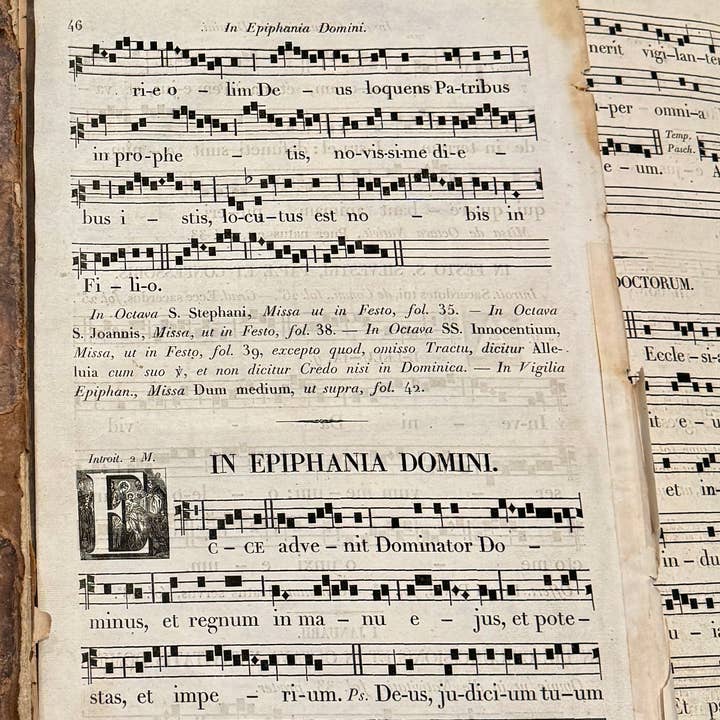 46
In Epiphania Domini.
ri-e o – lim De – us loquens Pa-tribus
in pro-phe – tis, no-vis-si-me di-e –
bus i – stis, lo-cu-tus est no bis in
Fi – li-o.
In Octava S. Stephani, Missa ut in Festo, fol. 35. — In Octava
S. Joannis, Missa, ut in Festo, fol. 38. — In Octava SS. Innocentium,
Missa, ut in Festo, fol. 39, excepto quod, omisso Tractu, dicitur Alle-
luia cum suo ℣, et non dicitur Credo nisi in Dominica. — In Vigilia
Epiphan., Missa Dum medium, ut supra, fol. 42.
Introit. 2 M.
IN EPIPHANIA DOMINI.
E
C – CE adve – nit Dominator Do –
minus, et regnum in ma – nu e – jus, et pote –
stas, et impe – ri-um. Ps. De-us, ju-dici-um tu-um
nerit vigi-lan-te
-per – omni-a
Temp.
Pasch.
e – um. A
DOCTORUM.
Eccle – si-
it e – u
et in-
in – du
u – i
Et p